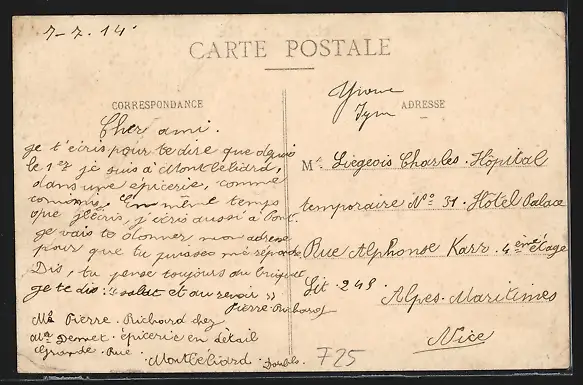 7-7. 14.
CARTE POSTALE
CORRESPONDANCE
Yvonne
ADRESSE
Cher ami.
je t'écris pour te dire que depuis
le 1er je suis à Montbéliard,
dans une epicerie, comme
commis, En même temps
que j'écris, j'écris aussi à
je vais te donner mon adresse
pour que tu puisses me répondre
Dis, tu pense toujours du briquet
je te dis: "salut et au revoir"
Pierre Richard
Mr Pierre Richard chez
épicerie en détail
Grande Rue
Montbéliard. Doubs.
Mr. Liégeois Charles. Hôpital
temporaire No 31. Hôtel Palace
Rue Alphonse Karr. 4ème étage
Lit. 248.
Alpes-Maritimes
Nice
F25